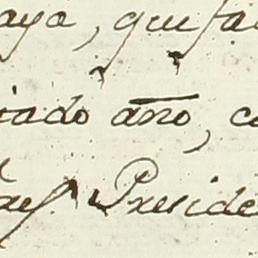 aya, que fa
tado año, co
Preside